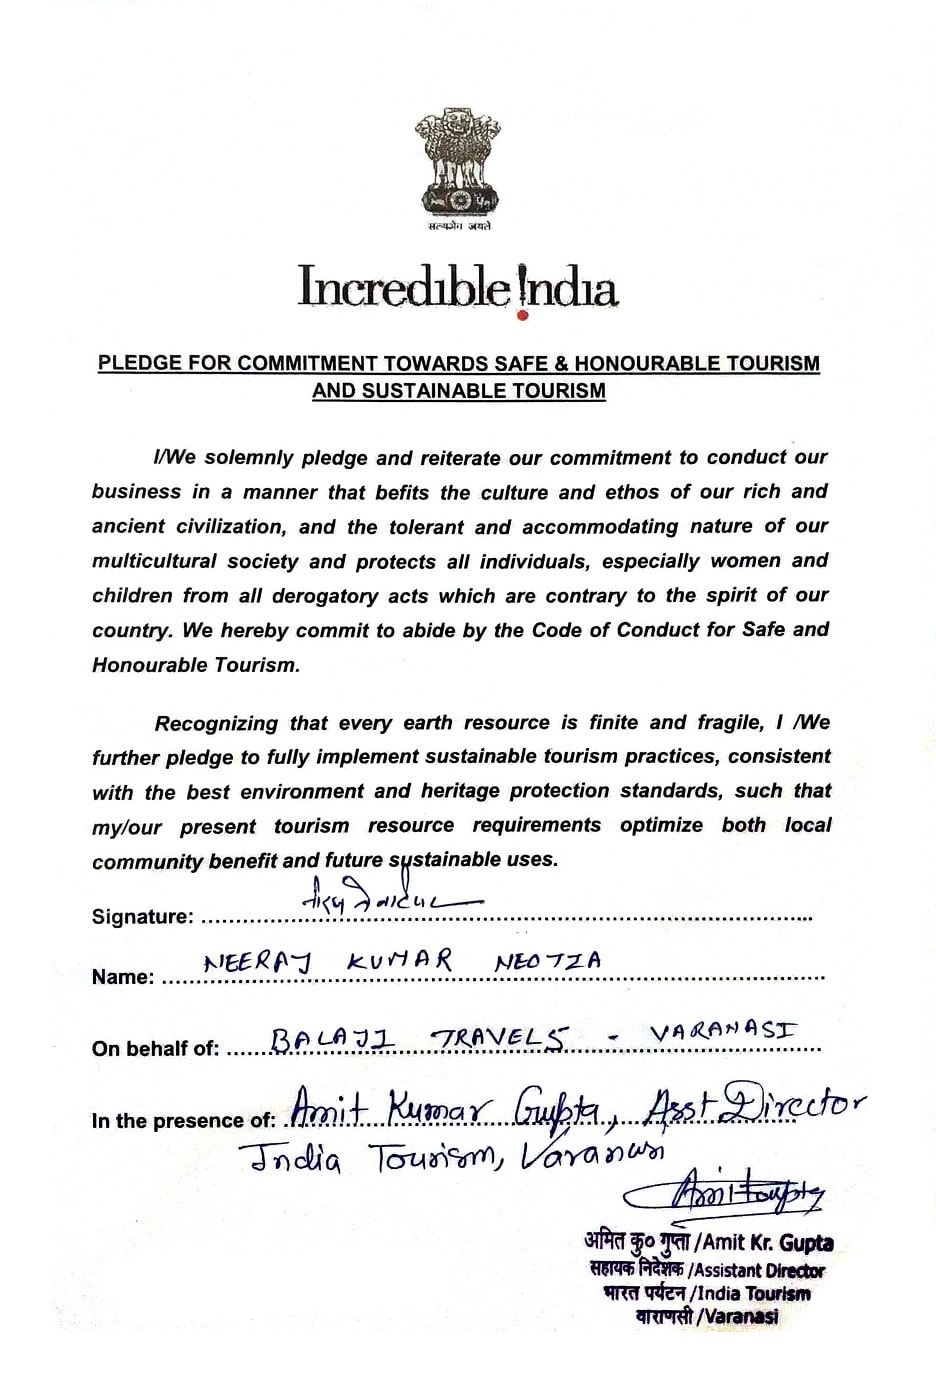 सत्यमेव जयते
Incredible !ndia
PLEDGE FOR COMMITMENT TOWARDS SAFE & HONOURABLE TOURISM
AND SUSTAINABLE TOURISM
I/We solemnly pledge and reiterate our commitment to conduct our
business in a manner that befits the culture and ethos of our rich and
ancient civilization, and the tolerant and accommodating nature of our
multicultural society and protects all individuals, especially women and
children from all derogatory acts which are contrary to the spirit of our
country. We hereby commit to abide by the Code of Conduct for Safe and
Honourable Tourism.
Recognizing that every earth resource is finite and fragile, I /We
further pledge to fully implement sustainable tourism practices, consistent
with the best environment and heritage protection standards, such that
my/our present tourism resource requirements optimize both local
community benefit and future sustainable uses.
Signature:
Name: NEERAJ KUMAR NEOTIA
On behalf of: BALAJI TRAVELS - VARANASI
In the presence of: Amit Kumar Gupta, Asst Director
India Tourism, Varanasi
अमित कु० गुप्ता /Amit Kr. Gupta
सहायक निदेशक /Assistant Director
भारत पर्यटन /India Tourism
वाराणसी /Varanasi